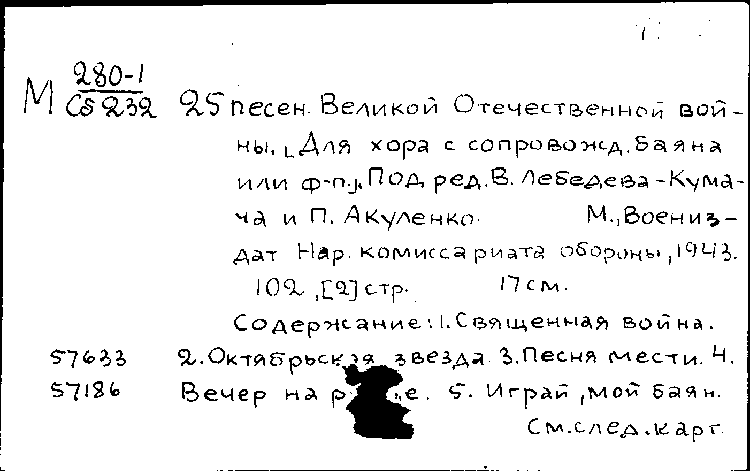 М 280-1
Сб 232
25 песен Великой Отечественной вой-
ны. [Для хора с сопровожд. баяна
или ф-п.]. Под ред. В. Лебедева-Кума-
ча и П. Акуленко. М., Воениз-
дат Нар. комиссариата обороны, 1943.
102, [2] стр. 17 см.
Содержание: 1. Священная война.
57633 2. Октябрьская звезда. 3. Песня мести. 4.
57186 Вечер на 5. Играй, мой баян.
См. след. карт.